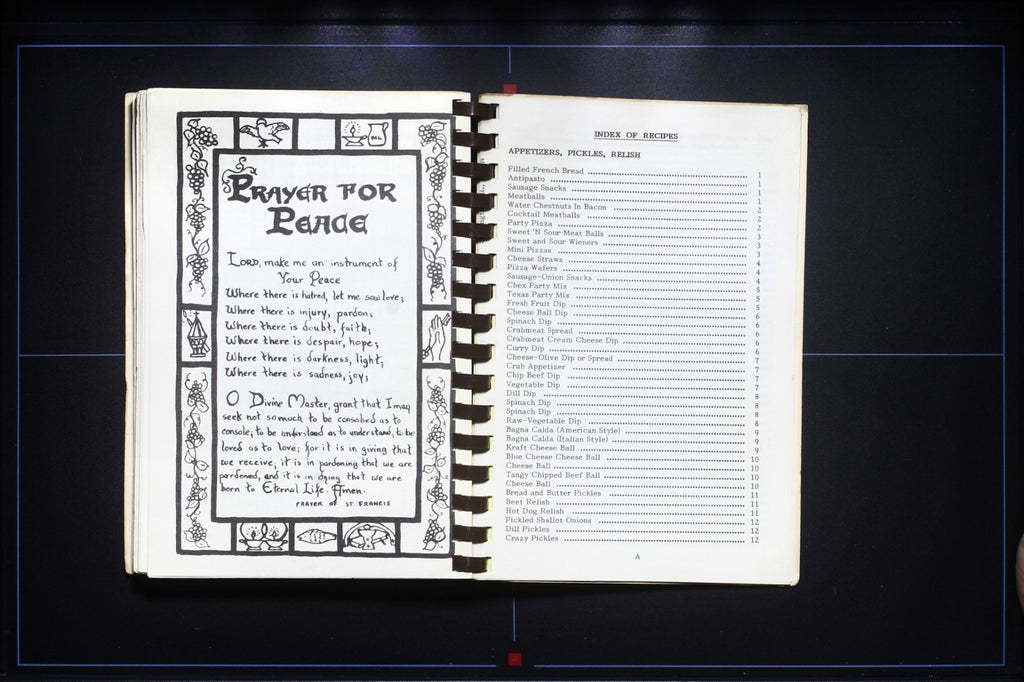 OIL
PRAYER FOR
PEACE
LORD, make me an instrument of
Your Peace
Where there is hatred, let me sow love;
Where there is injury, pardon;
Where there is doubt, faith;
Where there is despair, hope;
Where there is darkness, light;
Where there is sadness, joy;
O Divine Master, grant that I may
seek not so much to be consoled as to
console; to be understood as to understand; to be
loved as to love; for it is in giving that
we receive, it is in pardoning that we are
pardoned, and it is in dying that we are
born to Eternal Life. Amen.
PRAYER OF ST. FRANCIS
INDEX OF RECIPES
APPETIZERS, PICKLES, RELISH
Filled French Bread 1
Antipasto 1
Sausage Snacks 1
Meatballs 1
Water Chestnuts In Bacon 2
Cocktail Meatballs 2
Party Pizza 2
Sweet 'N Sour Meat Balls 3
Sweet and Sour Wieners 3
Mini Pizzas 3
Cheese Straws 4
Pizza Wafers 4
Sausage-Onion Snacks 4
Chex Party Mix 5
Texas Party Mix 5
Fresh Fruit Dip 5
Cheese Ball Dip 6
Spinach Dip 6
Crabmeat Spread 6
Crabmeat Cream Cheese Dip 6
Curry Dip 6
Cheese-Olive Dip or Spread 7
Crab Appetizer 7
Chip Beef Dip 7
Vegetable Dip 7
Dill Dip 8
Spinach Dip 8
Spinach Dip 8
Raw-Vegetable Dip 8
Bagna Calda (American Style) 9
Bagna Calda (Italian Style) 9
Kraft Cheese Ball 9
Blue Cheese Cheese Ball 10
Cheese Ball 10
Tangy Chipped Beef Ball 10
Cheese Ball 10
Bread and Butter Pickles 11
Beet Relish 11
Hot Dog Relish 11
Pickled Shallot Onions 12
Dill Pickles 12
Crazy Pickles 12
A